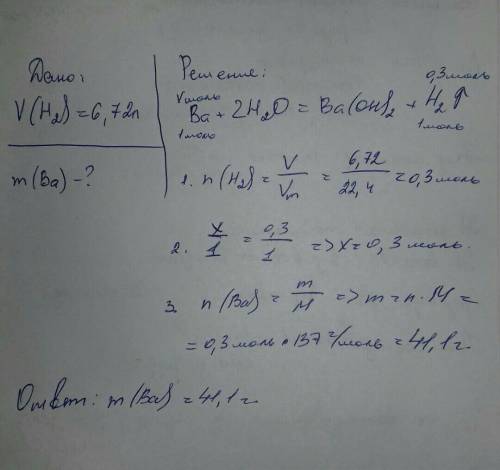 Дано:
V(H₂) = 6,72л
m(Ba) - ?
Решение:
x моль 0,3 моль
Ba + 2H₂O = Ba(OH)₂ + H₂↑
1 моль 1 моль
1. n(H₂) = V/Vm = 6,72/22,4 = 0,3 моль
2. x/1 = 0,3/1 => x = 0,3 моль.
3. n(Ba) = m/M => m = n · M =
= 0,3 моль · 137 г/моль = 41,1 г.
Ответ: m(Ba) = 41,1 г